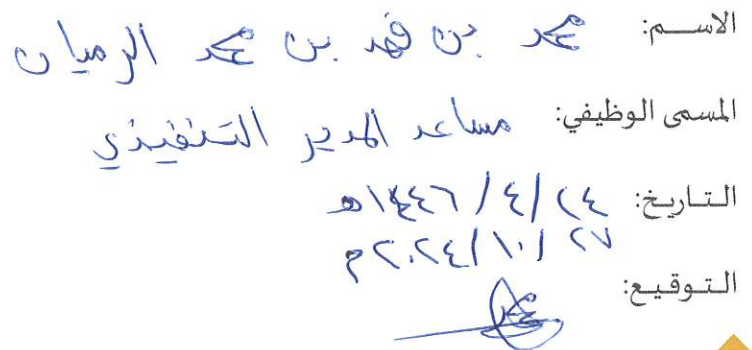 الاسم: محمد بن فهد بن محمد الرميان
المسمى الوظيفي: مساعد المدير التنفيذي
التاريخ: ٢٤/٤/١٤٤٦هـ
٢٧/١٠/٢٠٢٤م
التوقيع: محمد